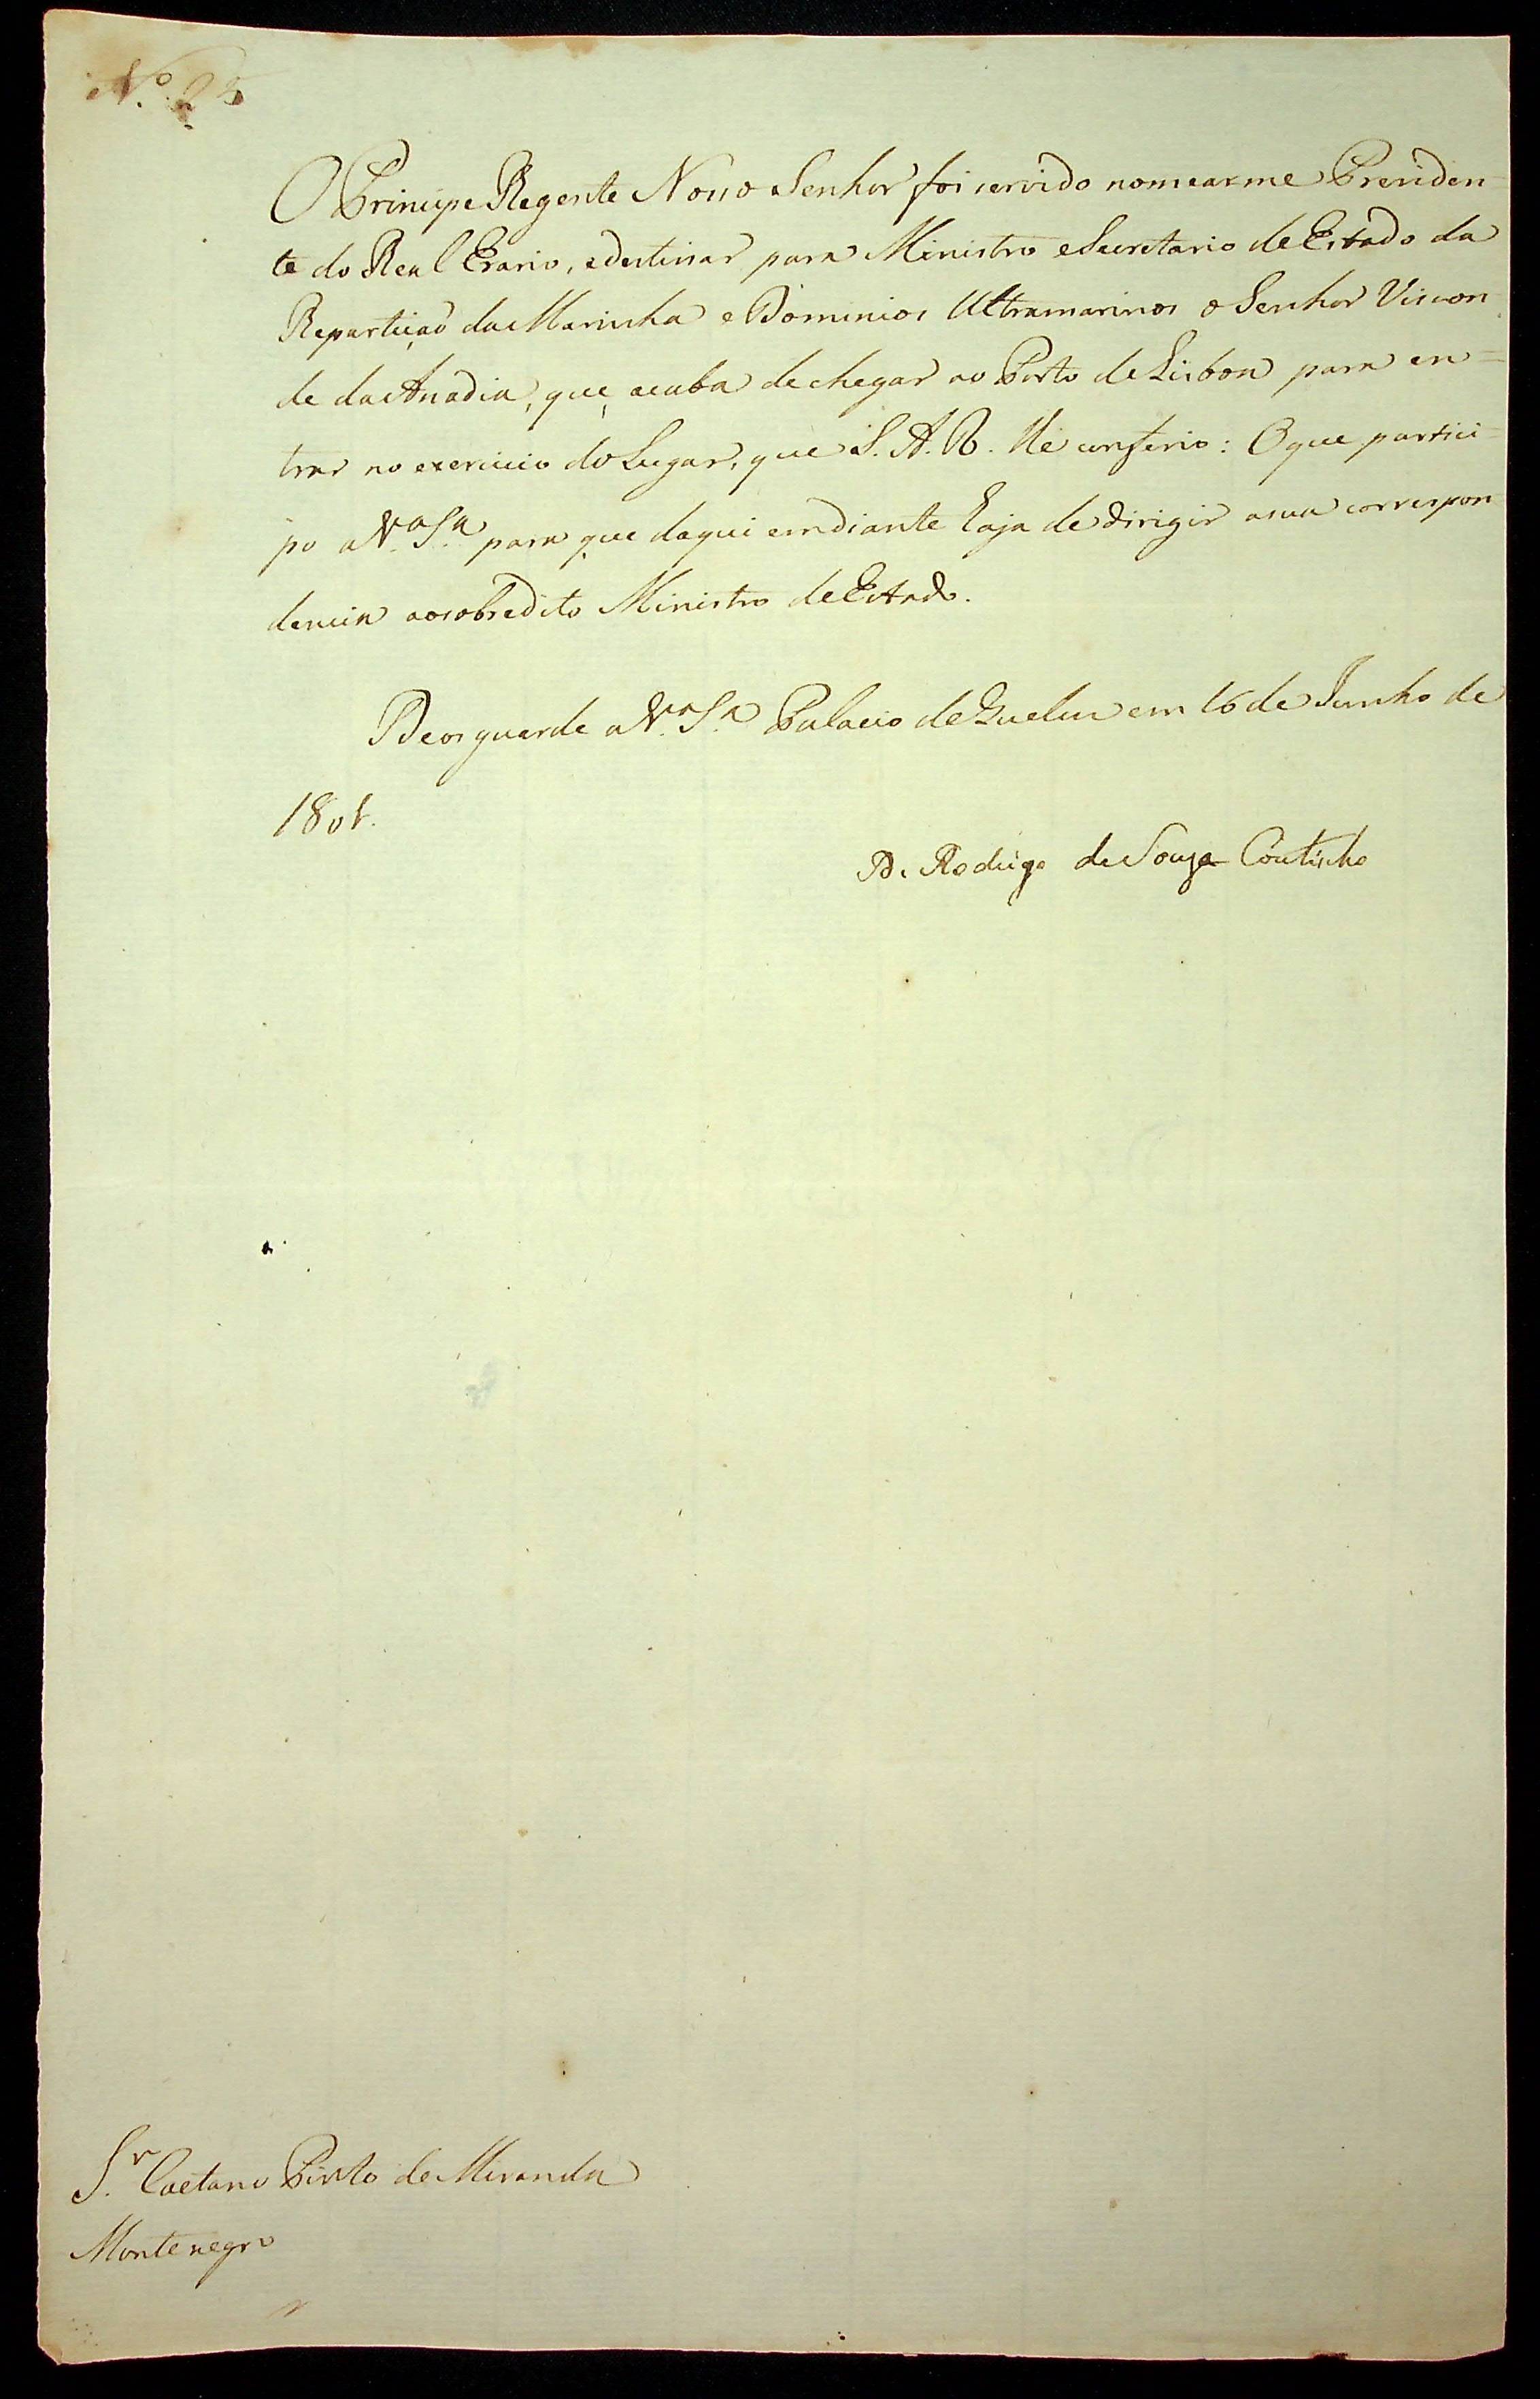 N.º 25
O Principe Regente Nosso Senhor foi servido nomearme Presiden-
te do Real Erario, e destinar para Ministro e Secretario de Estado da
Repartiçaõ da Marinha e Dominios Ultramarinos o Senhor Viscon
de da Anadia, que acaba de chegar ao Porto de Lisboa para en=
trar no exercicio do Lugar, que S. A. R. lhe conferio: O que partici=
po a V.ª S.ª para que daqui em diante haja de dirigir a sua correspon
dencia ao sobredito Ministro de Estado.
Deos guarde a V.ª S.ª Palacio de Queluz em 16 de Junho de
1801.
D. Rodrigo de Souza Coutinho
S.r Caetano Pinto de Miranda
Montenegro